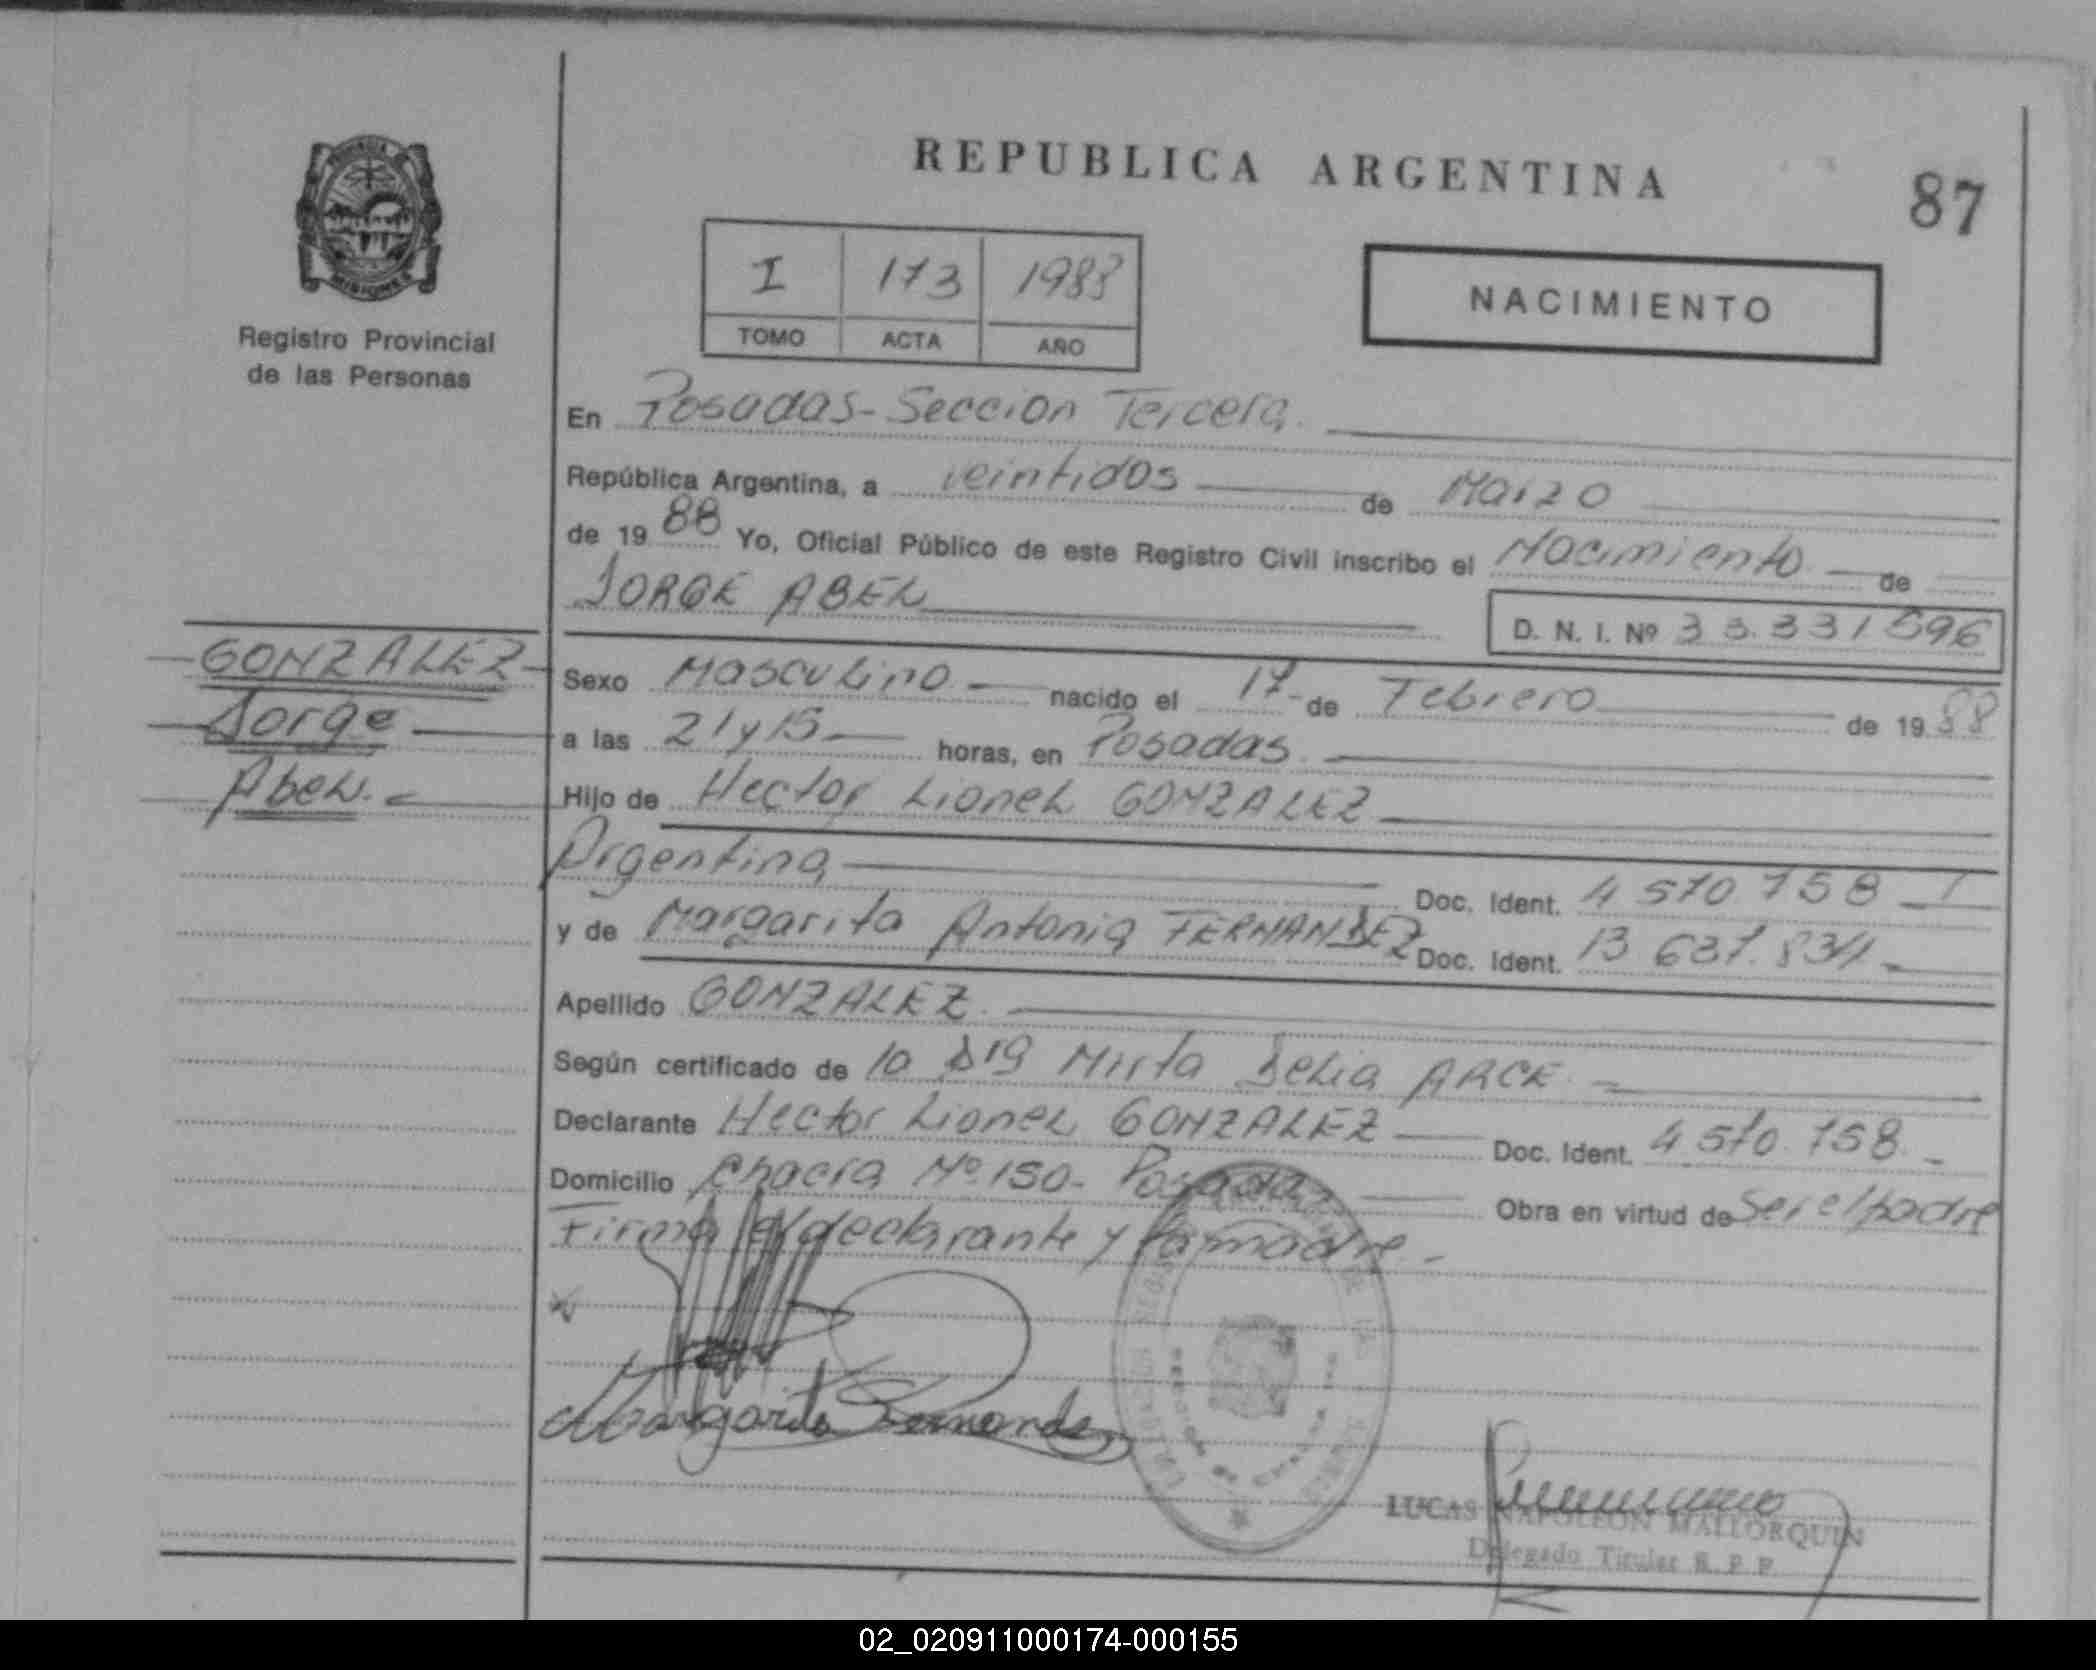 REPUBLICA ARGENTINA
87
PROVINCIA DE
MISIONES
Registro Provincial
de las Personas
I 173 1988
TOMO ACTA AÑO
NACIMIENTO
En Posadas-Seccion Tercera.
República Argentina, a veintidos de Marzo
de 1988 Yo, Oficial Público de este Registro Civil inscribo el Nacimiento de
JORGE ABEL
D. N. I. Nº 33.331596
GONZALEZ
Jorge
Abel.
Sexo Masculino nacido el 17 de Febrero de 1988
a las 21y15 horas, en Posadas.
Hijo de Hector Lionel GONZALEZ
Argentina Doc. Ident. 4 570 758
y de Margarita Antonia FERNANDEZ Doc. Ident. 13 637.834
Apellido GONZALEZ.
Según certificado de la Mirta Delia ARCE.
Declarante Hector Lionel GONZALEZ Doc. Ident. 4 570.758.
Domicilio Chacra Nº 150- Posadas Obra en virtud de Ser el padre
Firma el declarante y la madre.-
Margarita Fernandez
LUCAS NAPOLEON MALLORQUIN
Delegado Titular R. P. P.
02_020911000174-000155